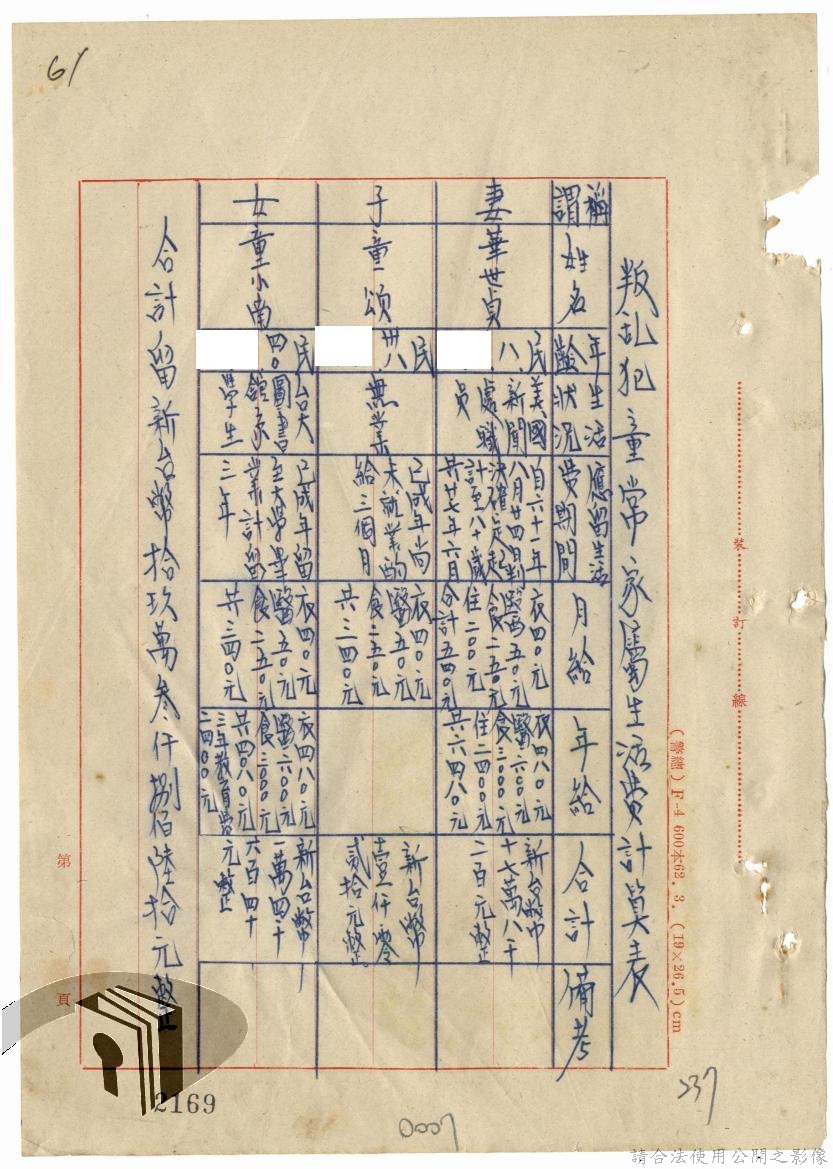 61
叛乱犯童常家屬生活費計算表
稱謂
姓名
年齡
生活狀況
應留生活費期間
月給
年給
合計
備考
妻
華世貞
民八、
美國新聞處職員
自六十一年八月廿四日判決確定起計至八十歲共廿七年六月
衣四〇元
醫五〇元
食二五〇元
住二〇〇元
合計五四〇元
衣四八〇元
醫六〇〇元
食三〇〇〇元
住二四〇〇元
共六四八〇元
新台幣十七萬八千二百元整
子
童頌
民卅八
無業
已成年尚未就業酌給三個月
衣四〇元
醫五〇元
食二五〇元
共三四〇元
新台幣壹仟零貳拾元整
女
童小南
民四〇
台大圖書館系學生
已成年留至大學畢業計留三年
衣四〇元
醫五〇元
食二五〇元
共三四〇元
衣四八〇元
醫六〇〇元
食三〇〇〇元
共四〇八〇元
三年教育費二四〇〇元
新台幣一萬四千六百四十元整
合計留新台幣拾玖萬叁仟捌佰陸拾元整
裝訂線
(警總) F-4 600本62. 3. (19×26.5)cm
第 頁
2169
0007
237
請合法使用公開之影像